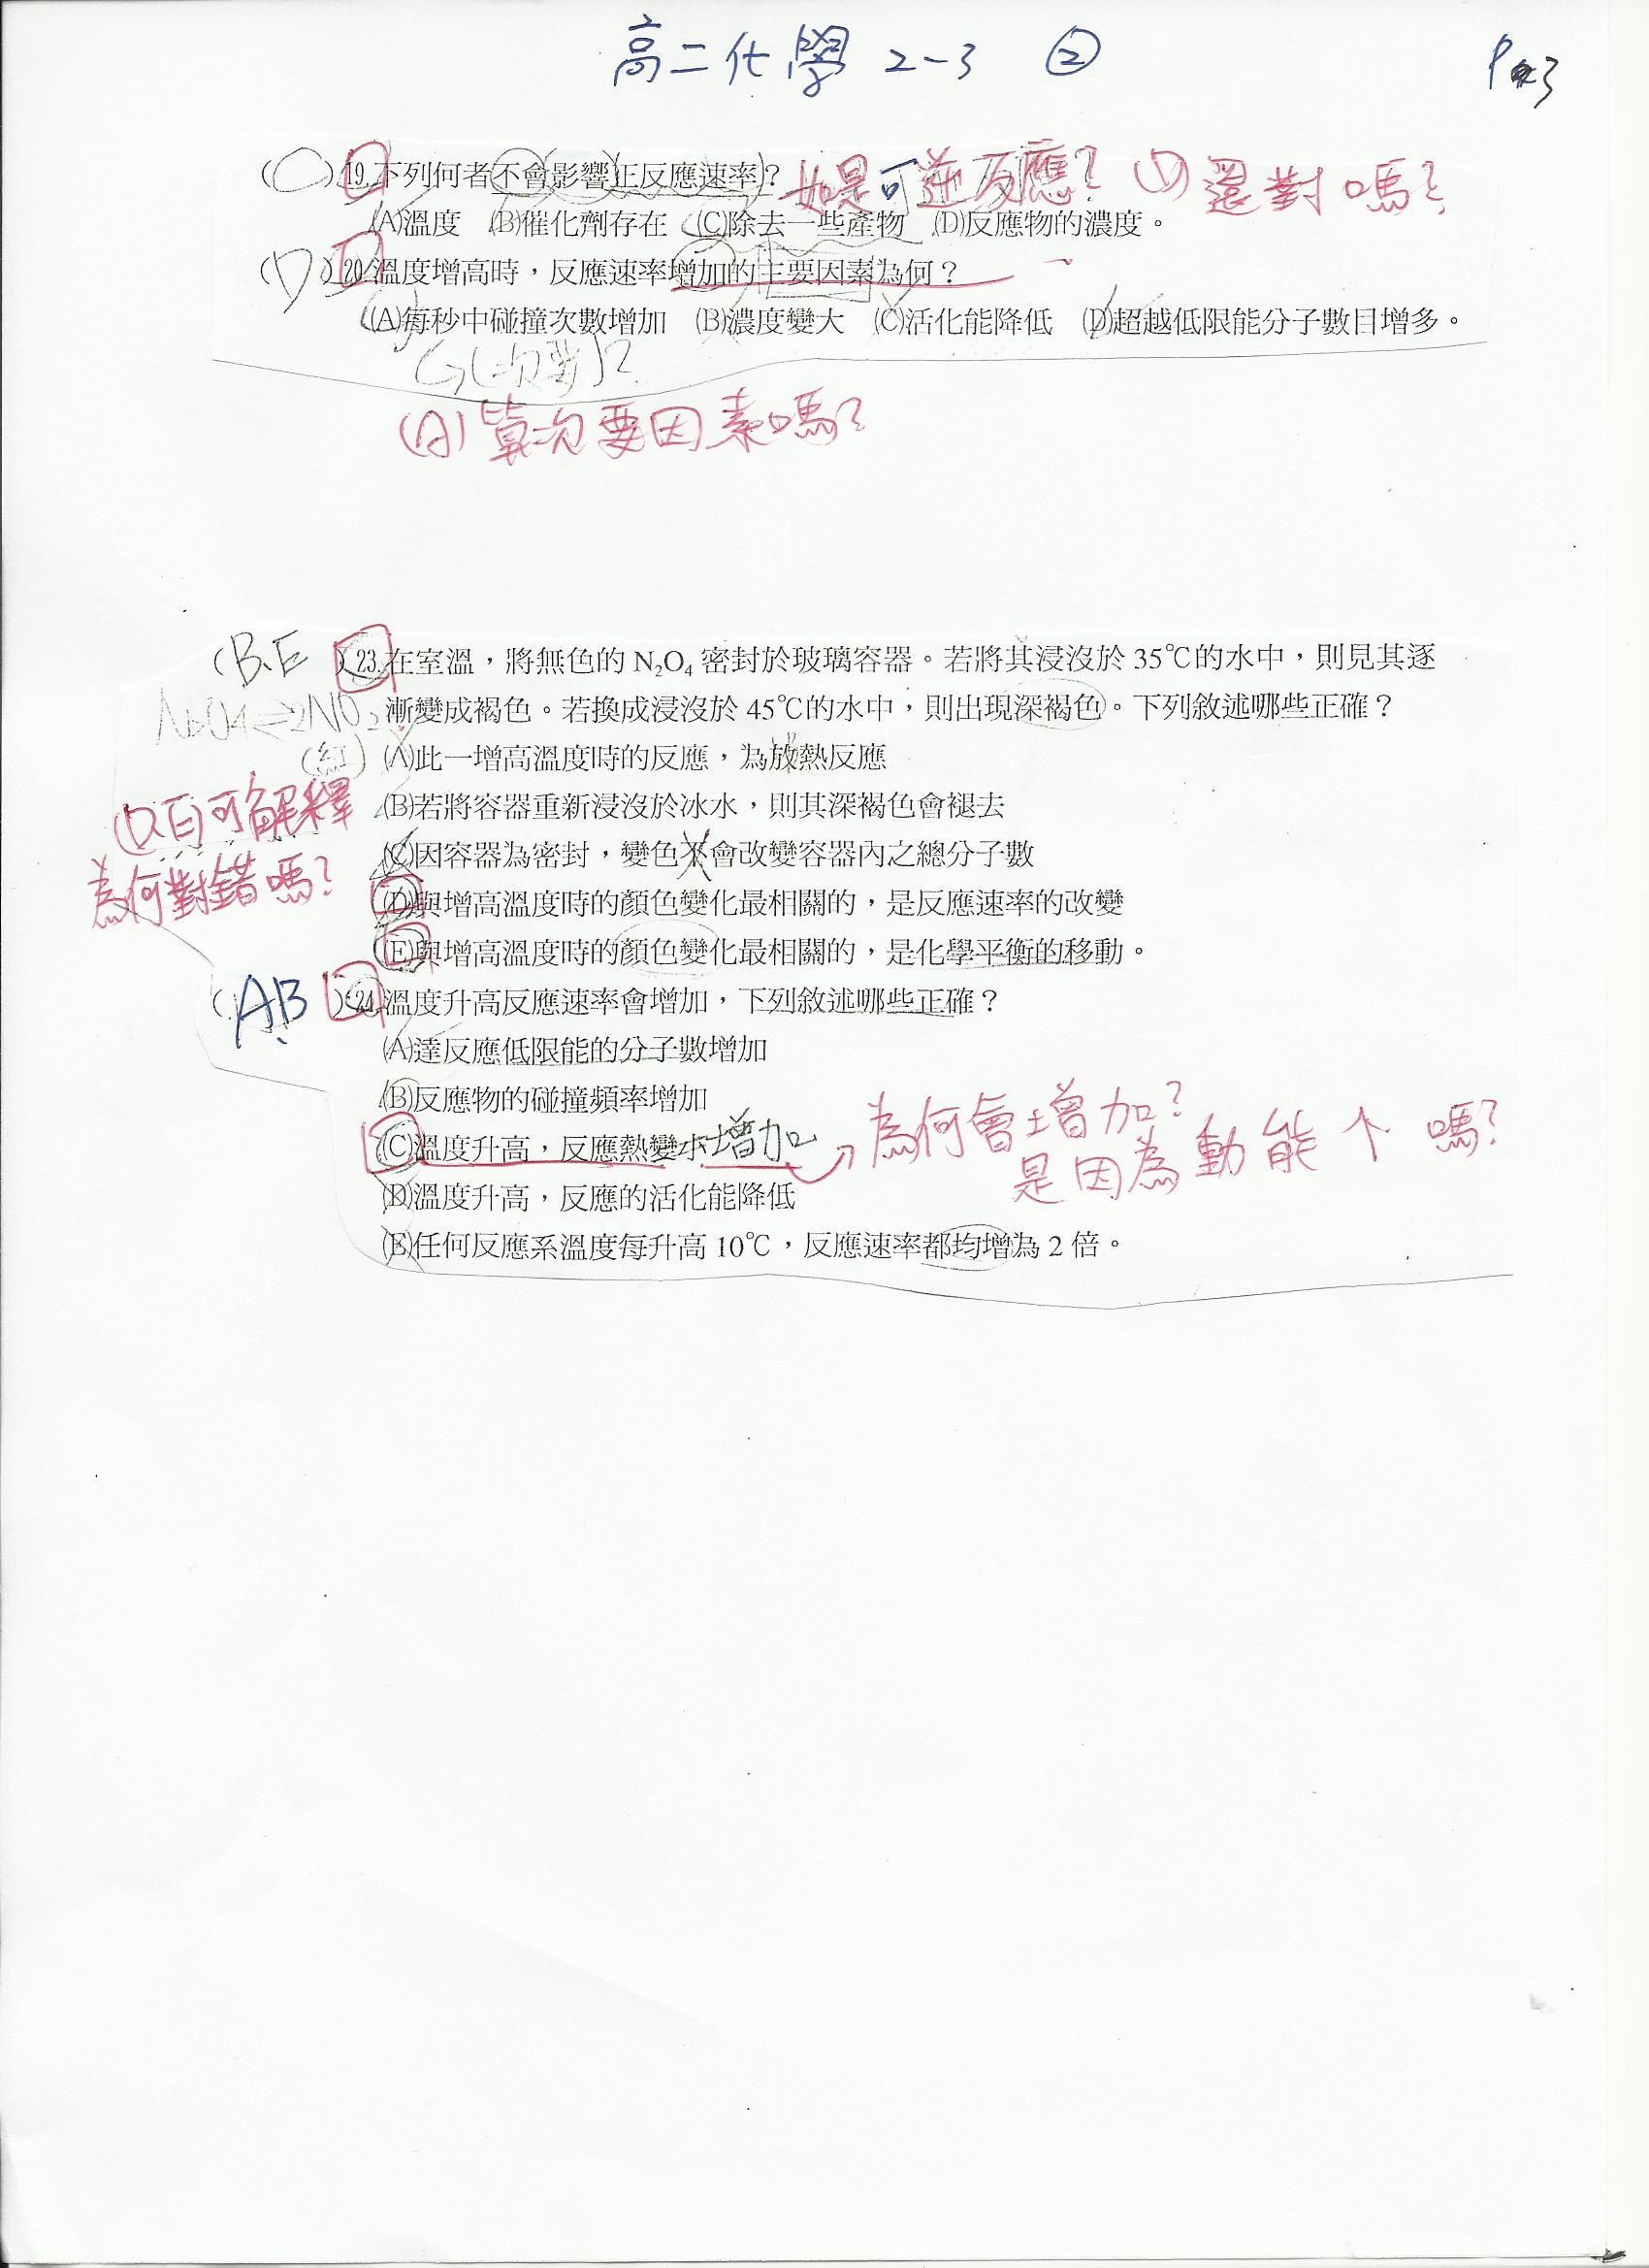 高二化學 2-3 ②
P 3
(C)19.下列何者不會影響正反應速率？ 如是可逆反應? (D)還對嗎?
(A)溫度 (B)催化劑存在 (C)除去一些產物 (D)反應物的濃度。
(D)20.溫度增高時，反應速率增加的主要因素為何？
(A)每秒中碰撞次數增加 (B)濃度變大 (C)活化能降低 (D)超越低限能分子數目增多。
↳(次要)?
(A)算次要因素嗎?
(B.E)23.在室溫，將無色的 N₂O₄ 密封於玻璃容器。若將其浸沒於 35℃的水中，則見其逐
N₂O₄⇌2NO₂ 漸變成褐色。若換成浸沒於 45℃的水中，則出現深褐色。下列敘述哪些正確？
(紅) (A)此一增高溫度時的反應，為放熱反應
(B)若將容器重新浸沒於冰水，則其深褐色會褪去
(D.E)可解釋
(C)因容器為密封，變色不會改變容器內之總分子數
為何對錯嗎?
(D)與增高溫度時的顏色變化最相關的，是反應速率的改變
(E)與增高溫度時的顏色變化最相關的，是化學平衡的移動。
(AB)24.溫度升高反應速率會增加，下列敘述哪些正確？
(A)達反應低限能的分子數增加
(B)反應物的碰撞頻率增加
(C)溫度升高，反應熱變小 增加 → 為何會增加?
是因為動能↑嗎?
(D)溫度升高，反應的活化能降低
(E)任何反應系溫度每升高 10℃，反應速率都均增為 2 倍。